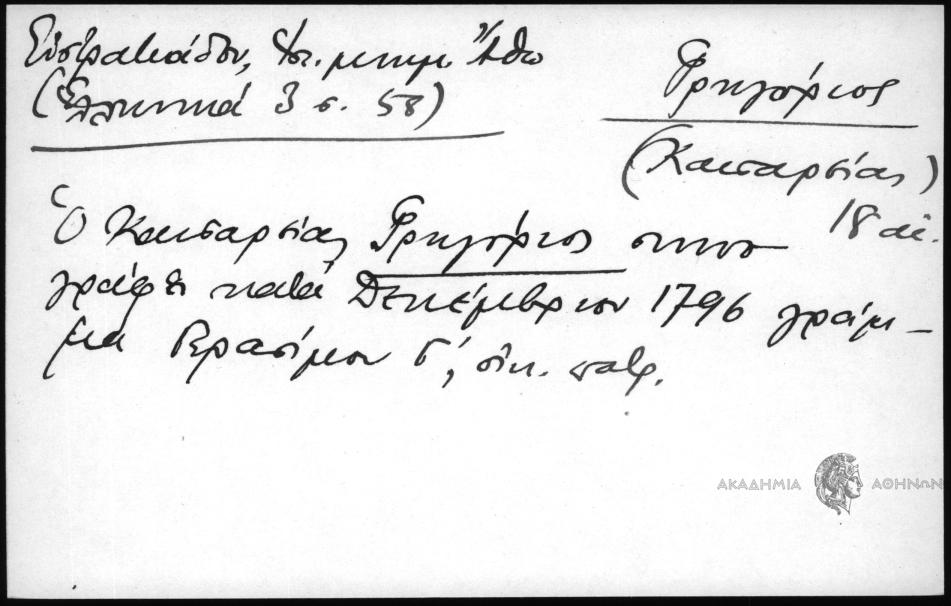 Εὐστρατιάδου, Ἱστ. μνημ. Ἄθω
(Ἑλληνικά 3 σ. 58)
Γρηγόριος
(Καισαρείας)
18 αἰ.
Ὁ Καισαρείας Γρηγόριος συνυπο
γράφει κατά Δεκέμβριον 1796 γράμ-
μα Γερασίμου Γ΄, οἰκ. πατρ.
ΑΚΑΔΗΜΙΑ ΑΘΗΝΩΝ